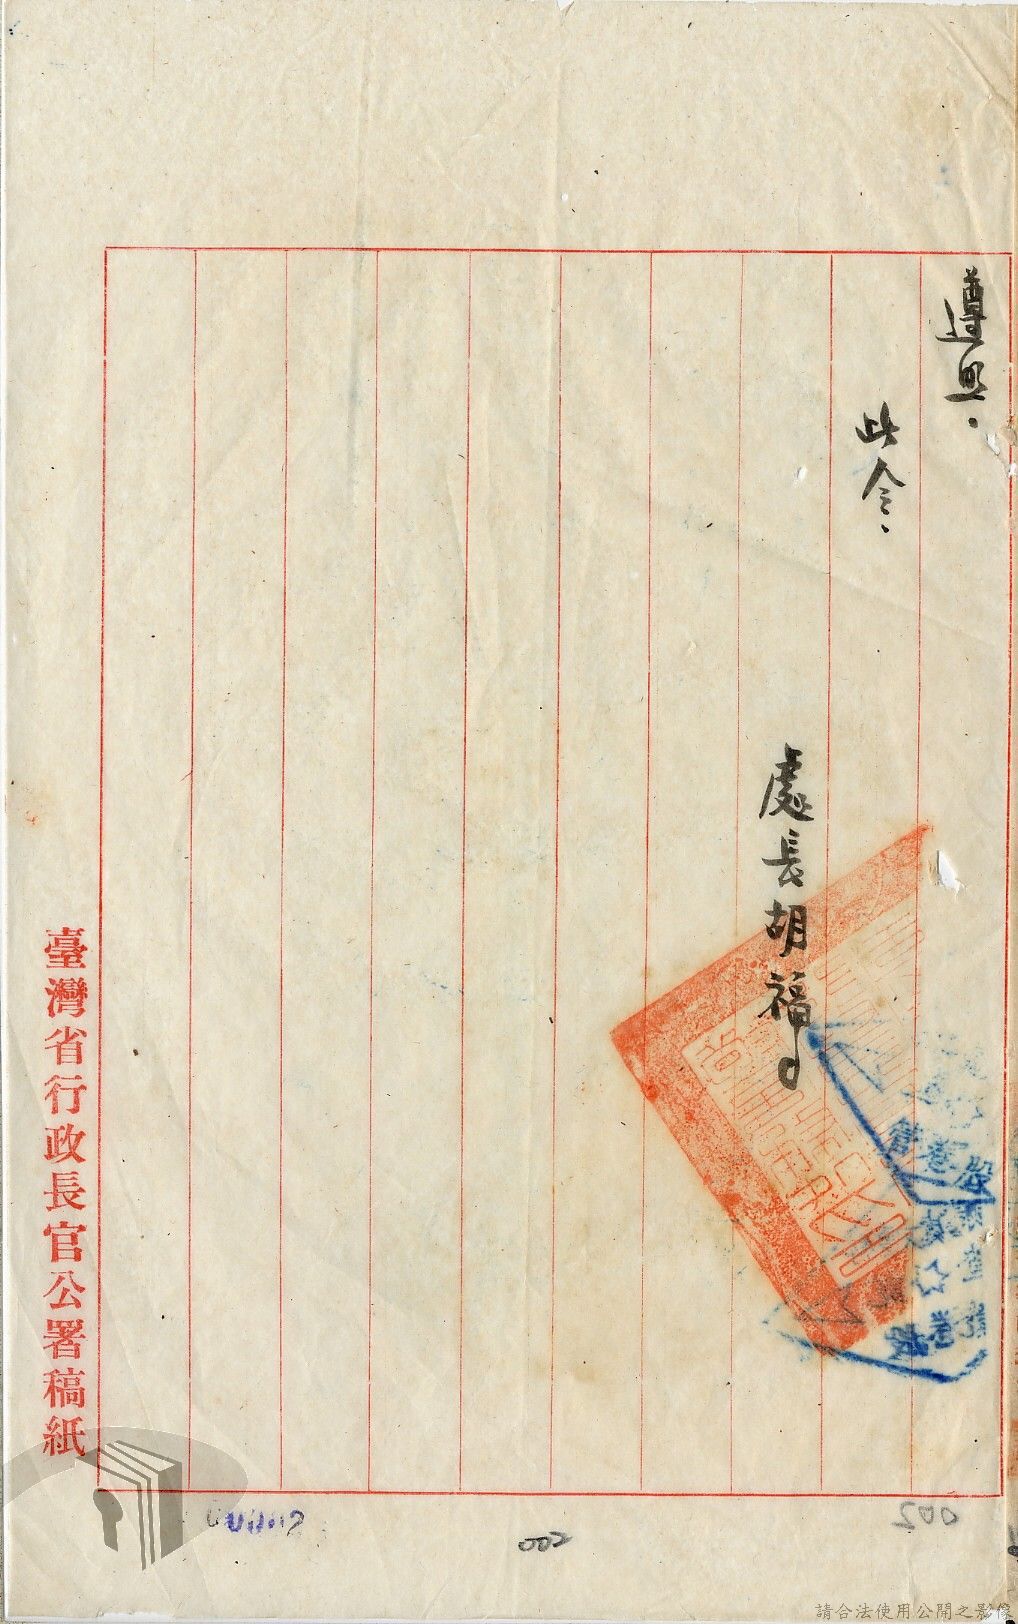 遵照.
此令.
處長胡福
臺灣省行政長官公署稿紙
002
請合法使用公開之影像